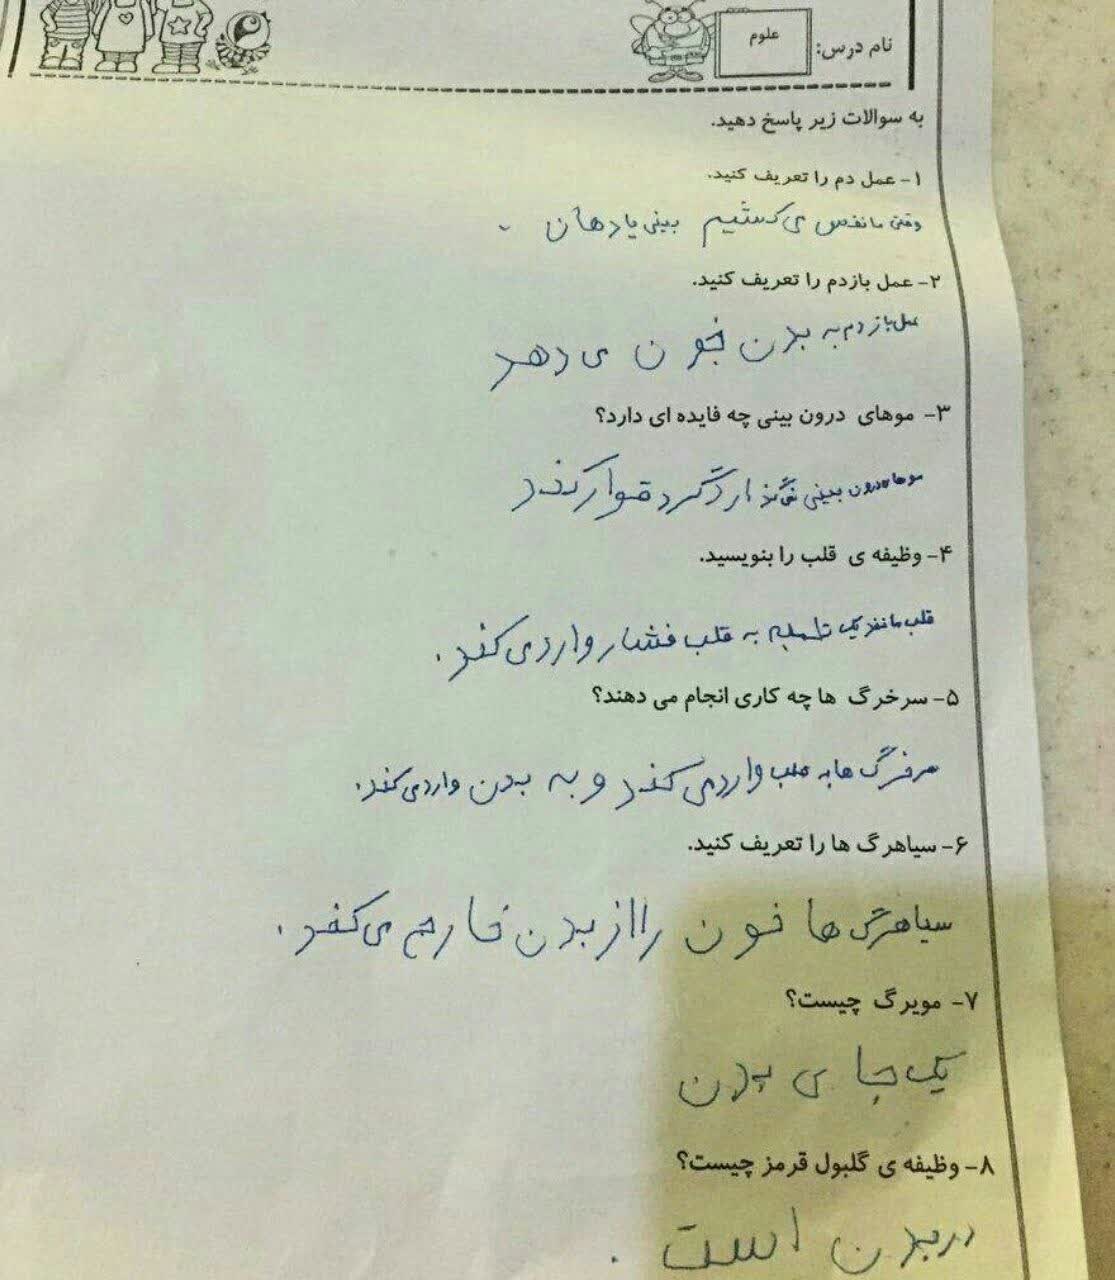 نام درس: علوم
به سوالات زیر پاسخ دهید.
۱- عمل دم را تعریف کنید.
وقتی ما نفس می کشیم بینی یا دهان .
۲- عمل بازدم را تعریف کنید.
عمل بازدم به بدن خون می دهد
۳- موهای درون بینی چه فایده ای دارد؟
موهای درون بینی گرد کند
۴- وظیفه ی قلب را بنویسید.
قلب مانند یک تلمبه به قلب فشار وارد می کند .
۵- سرخرگ ها چه کاری انجام می دهند؟
سرخرگ ها به قلب وارد می کند و به بدن وارد می کند .
۶- سیاهرگ ها را تعریف کنید.
سیاهرگ ها خون را از بدن خارج می کند .
۷- مویرگ چیست؟
یک جا ی بدن
۸- وظیفه ی گلبول قرمز چیست؟
در بدن است .